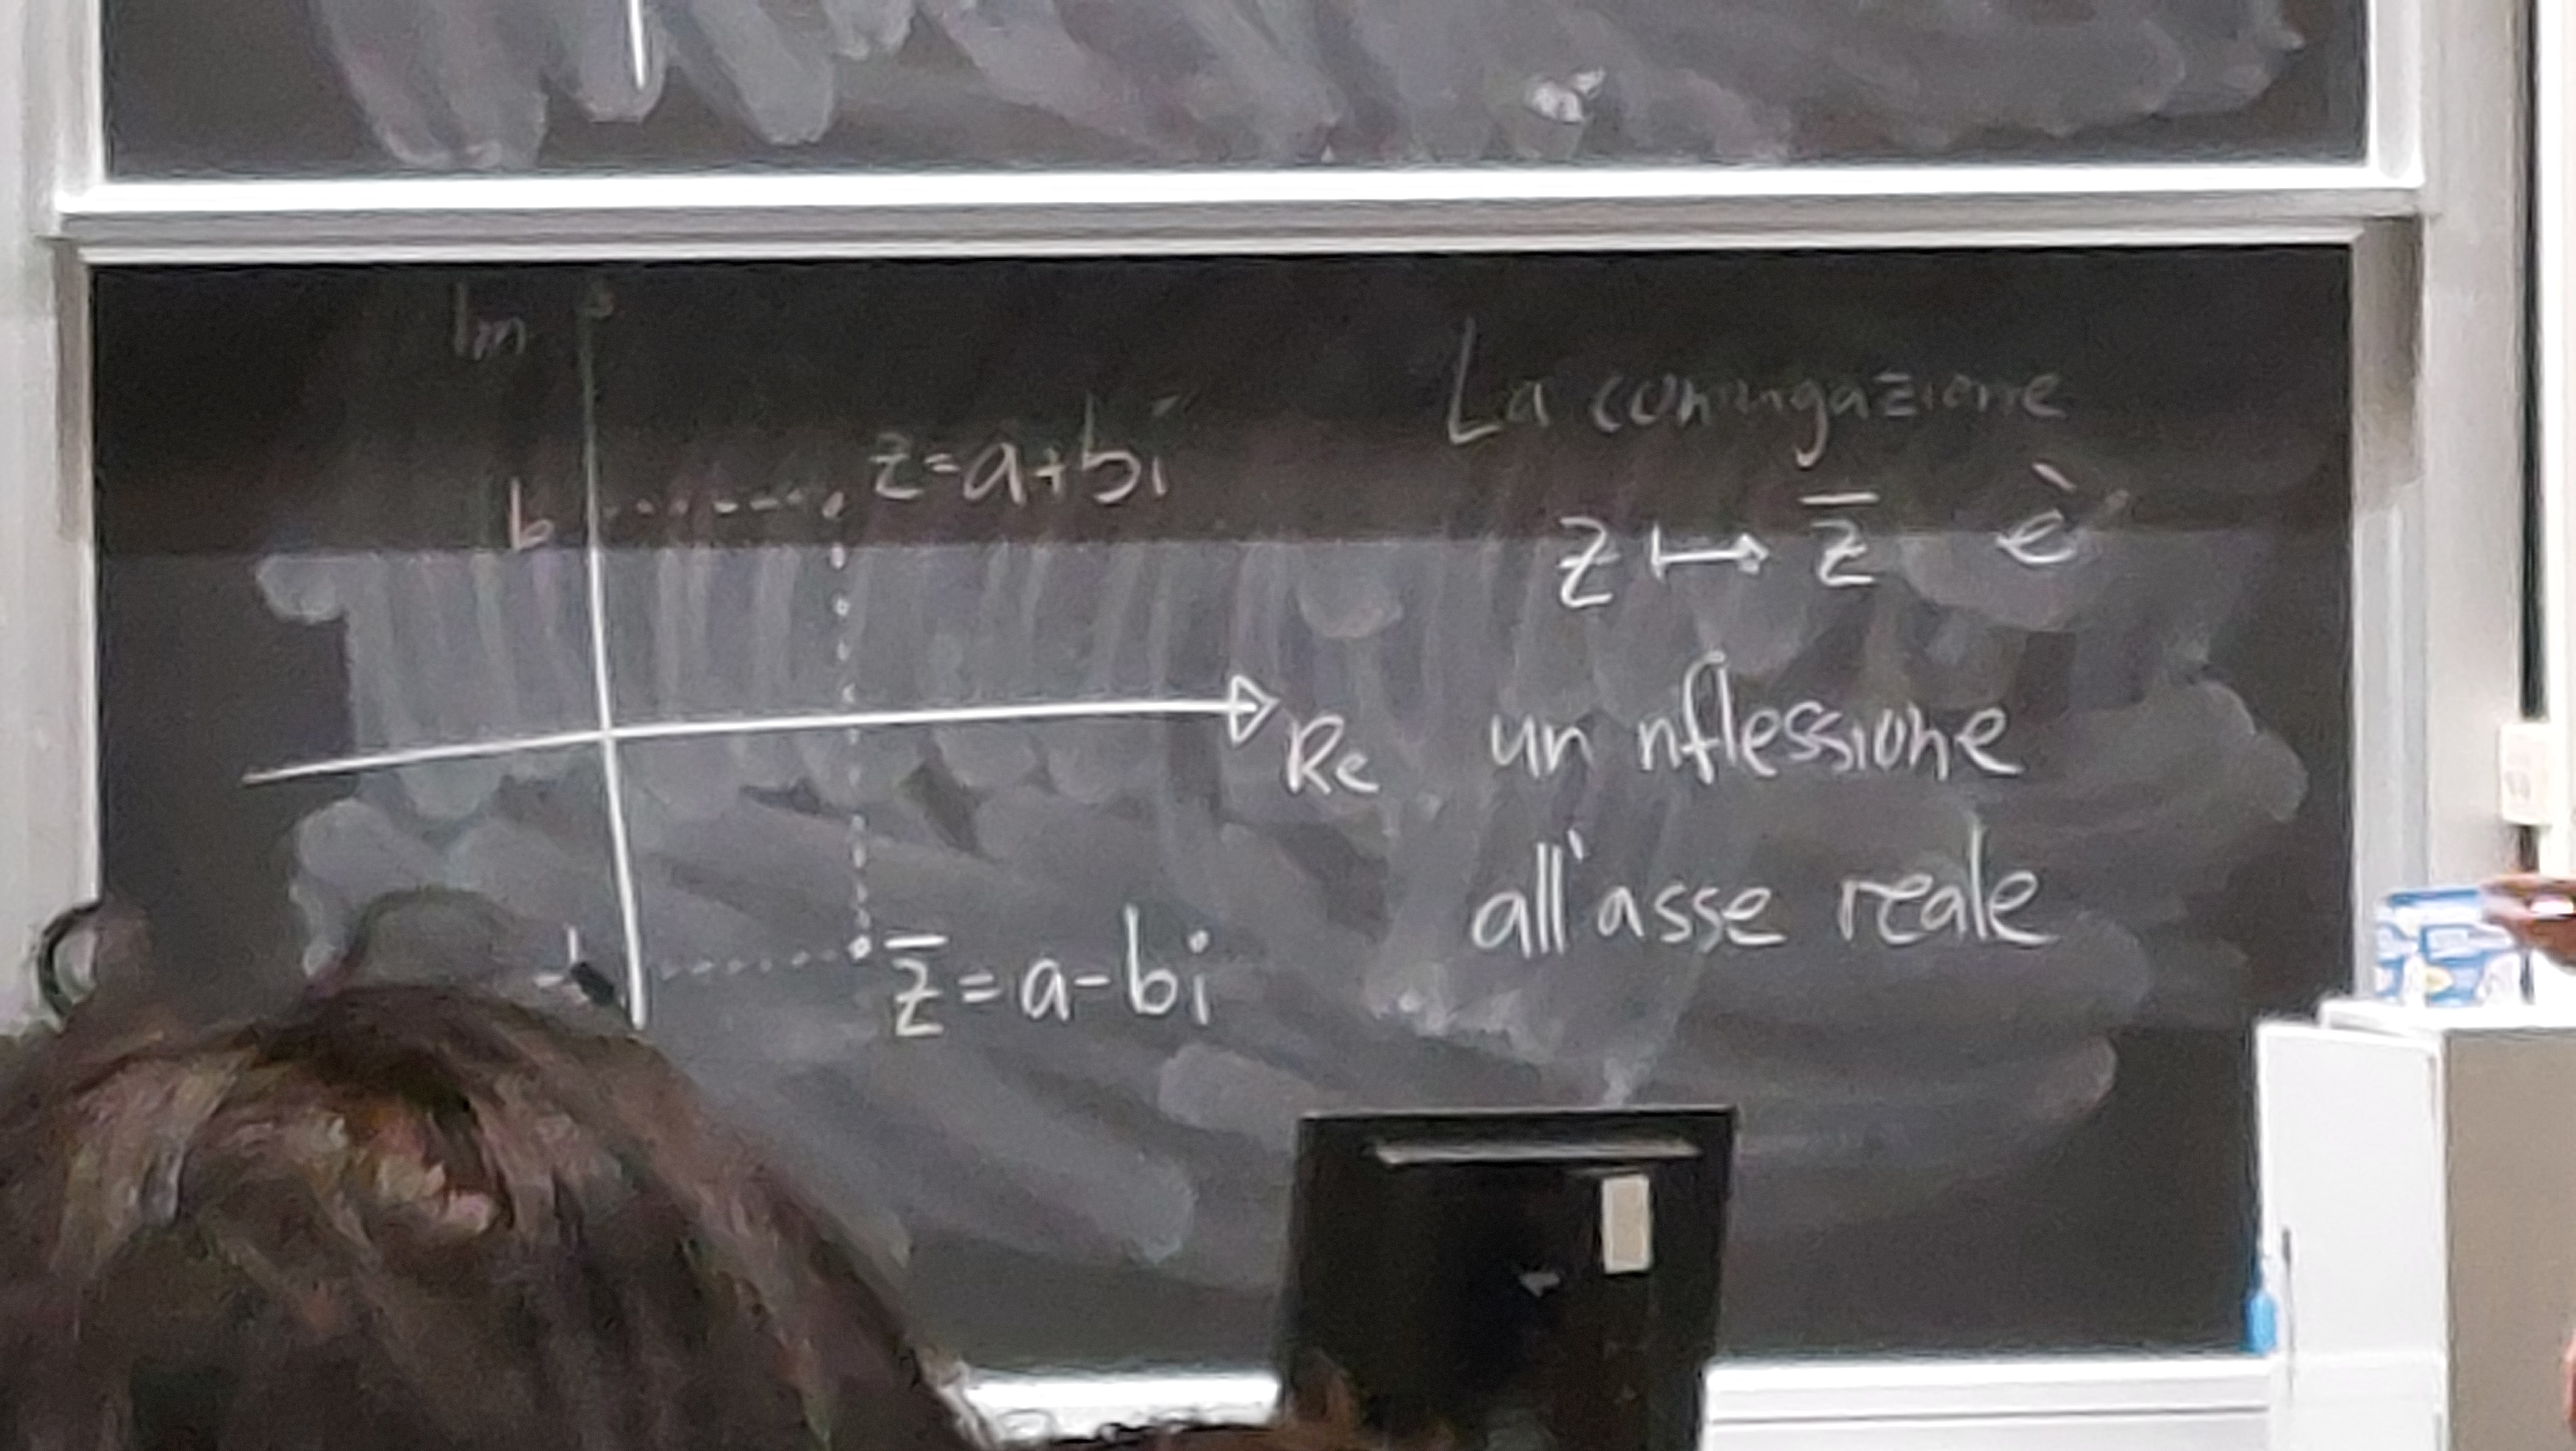 Im
z=a+bi
b
Re
-b
z̄=a-bi
La coniugazione
z ↦ z̄ è
un riflessione
all'asse reale